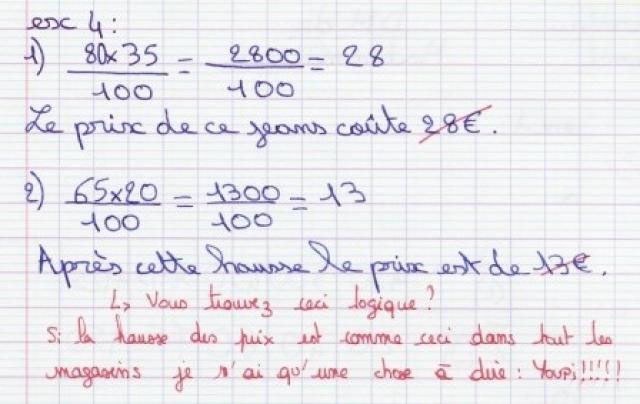 exc 4:
1) 80x35/100 = 2800/100 = 28
Le prix de ce jeans coûte 28€.
2) 65x20/100 = 1300/100 = 13
Après cette hausse le prix est de 13€.
↳ Vous trouvez ceci logique?
Si la hausse des prix est comme ceci dans tout les
magasins je n'ai qu'une chose à dire : Youpi!!!!!